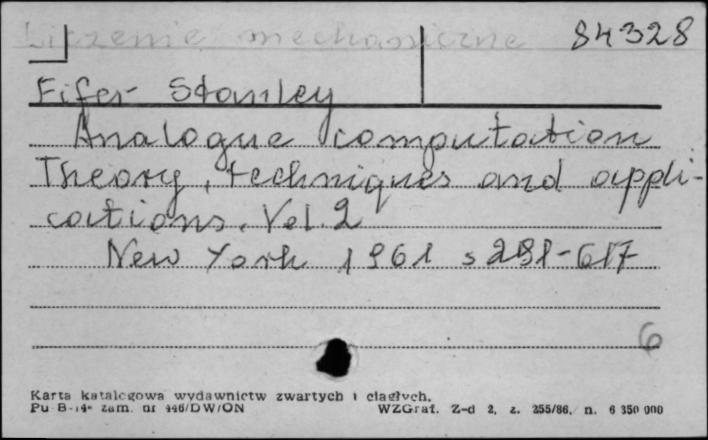 Liczenie mechaniczne 84328
Fifer Stanley
Analogue computation
Theory, techniques and appli-
cations. Vol. 2
New York 1961 s 291-617
6
Karta katalogowa wydawnictw zwartych i ciągłych.
Pu B-14- zam. nr 446/DW/ON WZGraf. Z-d 2, z. 255/86, n. 6 350 000